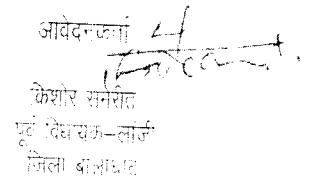 आवेदनकर्ता
किशोर समरीते
पूर्व विधायक-लांजी
जिला बालाघाट